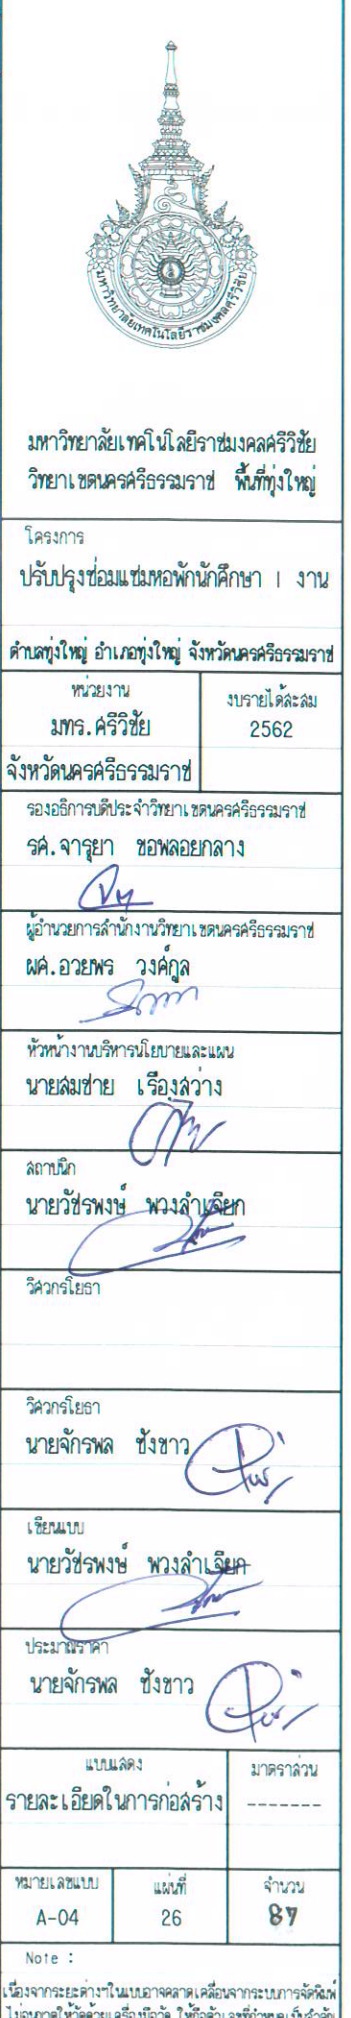 มหาวิทยาลัยเทคโนโลยีราชมงคลศรีวิชัย
มหาวิทยาลัยเทคโนโลยีราชมงคลศรีวิชัย
วิทยาเขตนครศรีธรรมราช พื้นที่ทุ่งใหญ่
โครงการ
ปรับปรุงซ่อมแซมหอพักนักศึกษา 1 งาน
ตำบลทุ่งใหญ่ อำเภอทุ่งใหญ่ จังหวัดนครศรีธรรมราช
หน่วยงาน
มทร.ศรีวิชัย
จังหวัดนครศรีธรรมราช
งบรายได้สะสม
2562
รองอธิการบดีประจำวิทยาเขตนครศรีธรรมราช
รศ.จารุยา ขอพลอยกลาง
ผู้อำนวยการสำนักงานวิทยาเขตนครศรีธรรมราช
ผศ.อวยพร วงศ์กูล
หัวหน้างานบริหารนโยบายและแผน
นายสมชาย เรืองสว่าง
สถาปนิก
นายวัชรพงษ์ พวงลำเจียก
วิศวกรโยธา
วิศวกรโยธา
นายจักรพล ชังขาว
เขียนแบบ
นายวัชรพงษ์ พวงลำเจียก
ประมาณราคา
นายจักรพล ชังขาว
แบบแสดง
รายละเอียดในการก่อสร้าง
มาตราส่วน
-------
หมายเลขแบบ
A-04
แผ่นที่
26
จำนวน
87
Note :
เนื่องจากระยะต่างๆในแบบอาจคลาดเคลื่อนจากระบบการจัดพิมพ์
ไม่อนุญาตให้วัดด้วยเครื่องมือวัด ให้ถือตัวเลขที่กำหนดเป็นสำคัญ